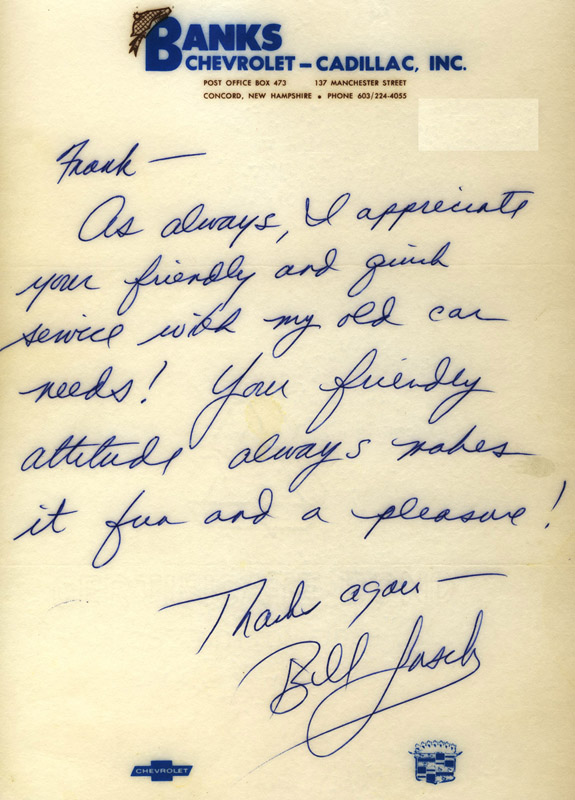 BANKS
CHEVROLET – CADILLAC, INC.
POST OFFICE BOX 473 137 MANCHESTER STREET
CONCORD, NEW HAMPSHIRE • PHONE 603/224-4055
Frank —
As always, I appreciate
your friendly and quick
service with my old car
needs! Your friendly
attitude always makes
it fun and a pleasure!
Thanks again —
Bill
CHEVROLET